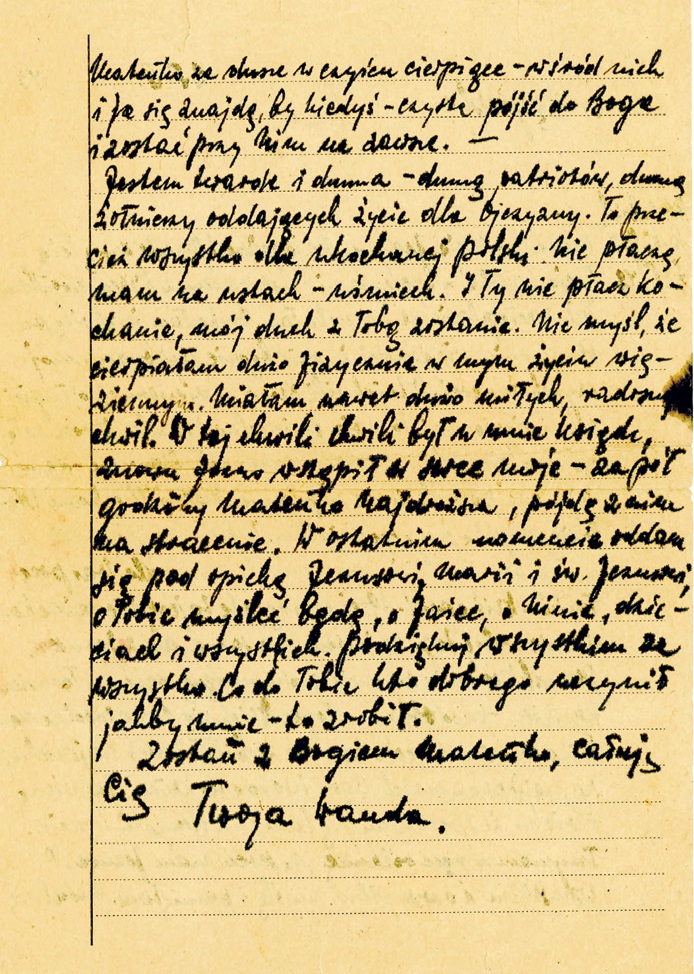 Mateńko za dusze w czyścu cierpiące – wśród nich
i ja się znajdę, by kiedyś – czysta pójść do Boga
i zostać przy Nim na zawsze. —
Jestem twarda i dumna – dumą patriotów, dumą
żołnierzy oddających życie dla Ojczyzny. To prze-
cież wszystko dla ukochanej Polski. Nie płaczę,
mam na ustach – uśmiech. I Ty nie płacz ko-
chanie, mój duch z Tobą zostanie. Nie myśl, że
cierpiałam dużo fizycznie w mym życiu wię-
ziennym. Miałam nawet dużo miłych,
chwil. W tej chwili chwili był u mnie ksiądz,
znowu Jezus wstąpił w serce moje – za pół
godziny Mateńko Najdroższa, pójdę z nim
na stracenie. W ostatnim momencie oddam
się pod opiekę Jezusowi, Marii i św.
o Tobie myśleć będę, o o Ninie, dzie-
ciach i wszystkich. Podziękuj wszystkim za
wszystko. Co do Tobie kto dobrego uczynił
jakby mnie – to zrobił.
Zostań z Bogiem Mateńko, całuję
Cię
Twoja Wanda.